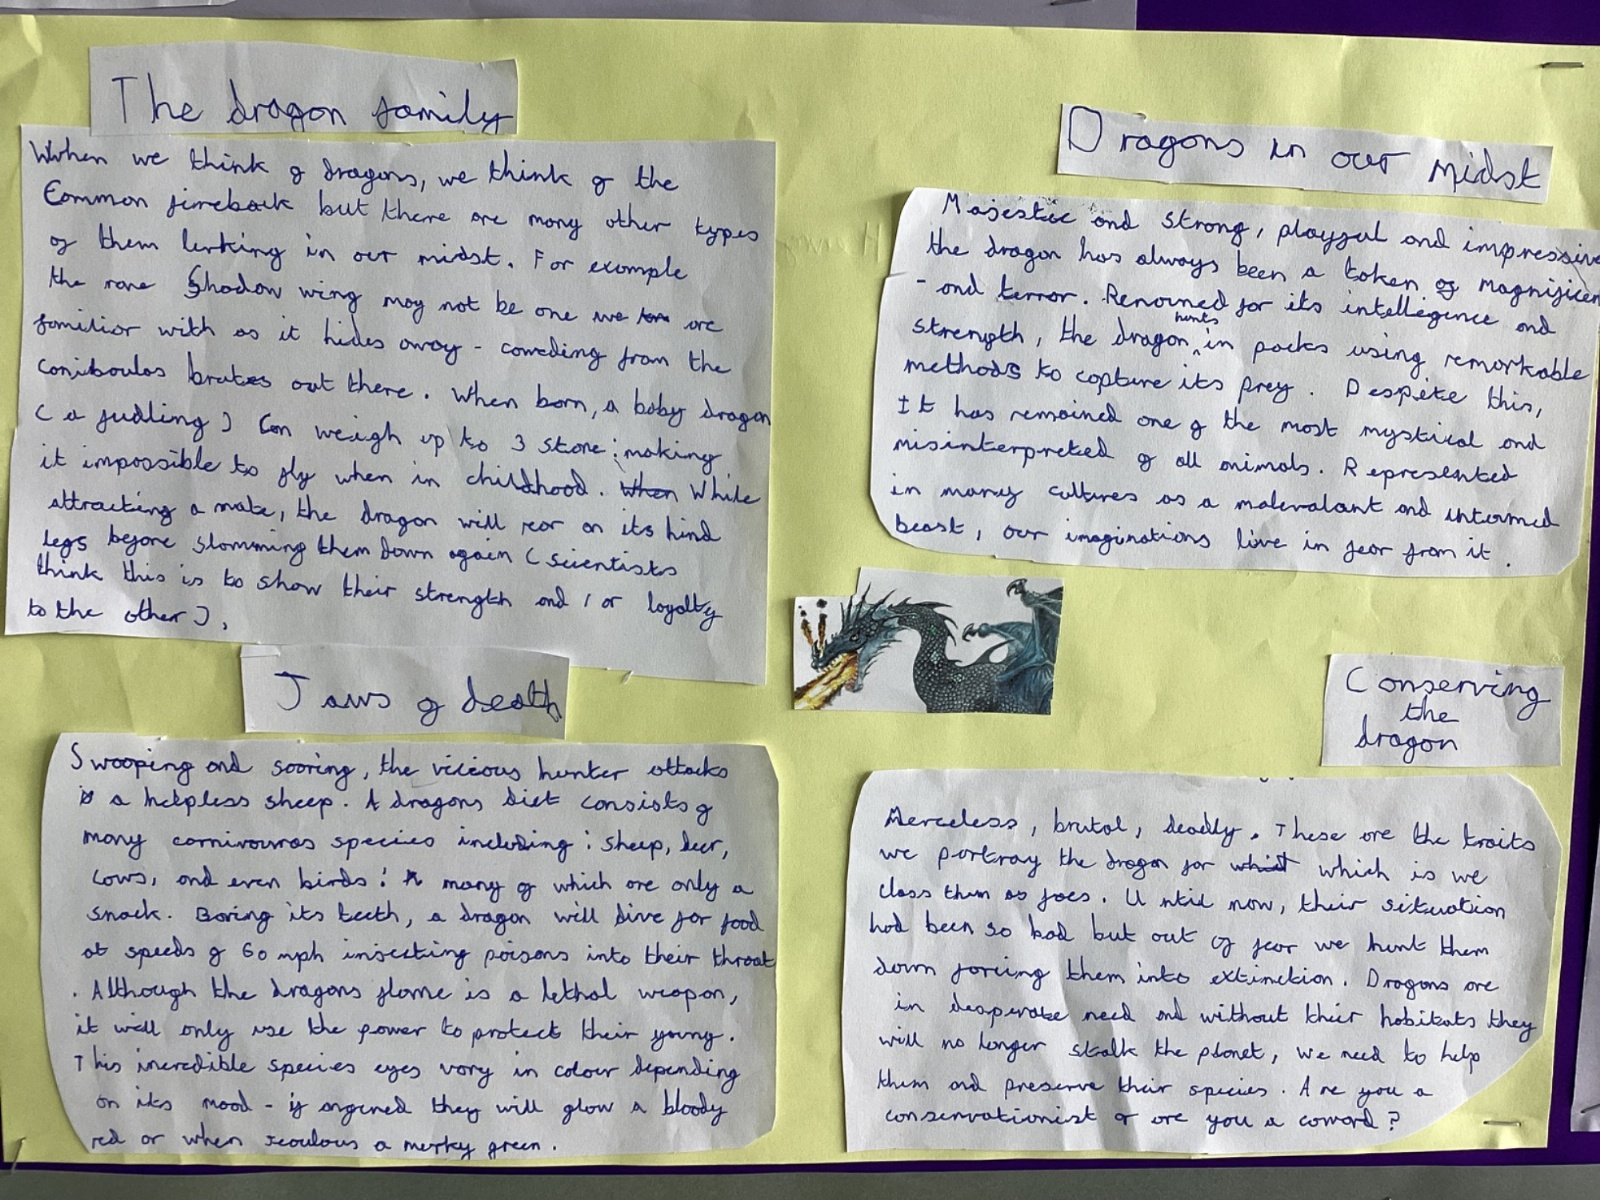 The dragon family
When we think of dragons, we think of the
Common fireback but there are many other types
of them lerking in our midst. For example
the rare Shadow wing may not be one we are
familior with as it hides away - cowding from the
coniboulas brutes out there. When born, a baby dragon
( a fudling ) Can weigh up to 3 stone: making
it impossible to fly when in childhood. When While
attracting a mate, the dragon will rear on its hind
legs before slamming them down again ( scientists
think this is to show their strength and / or loyalty
to the other ).
Jaws of death
Swooping and soaring, the vicious hunter attacks
a helpless sheep. A dragons diet consists of
many carnivouras species including: sheep, deer,
cows, and even birds! many of which are only a
snack. Baring its teeth, a dragon will dive for food
at speeds of 60 mph insecting poisons into their throat
. Although the dragons flame is a lethal weapon,
it will only use the power to protect their young.
This incredible species eyes vary in colour depending
on its mood - if angered they will glow a bloody
red or when jeoulous a merky green.
Dragons in our midst
Majestic and strong, playful and impressive
the dragon has always been a token of magnificen
- and terror. Renowned for its intellegence and
strength, the dragon hunts in packs using remarkable
methods to capture its prey. Despite this,
It has remained one of the most mystical and
misinterpreted of all animals. Represented
in many cultures as a malevalant and intermed
beast, our imaginations live in fear from it.
Conserving
the
dragon
Merceless, brutal, deadly. These are the traits
we portray the dragon for whist which is we
class them as foes. Until now, their situation
had been so bad but out of fear we hunt them
down forcing them into extinction. Dragons are
in desperate need and without their habitats they
will no longer stalk the planet, we need to help
them and preserve their species. Are you a
conservationist or are you a coward?